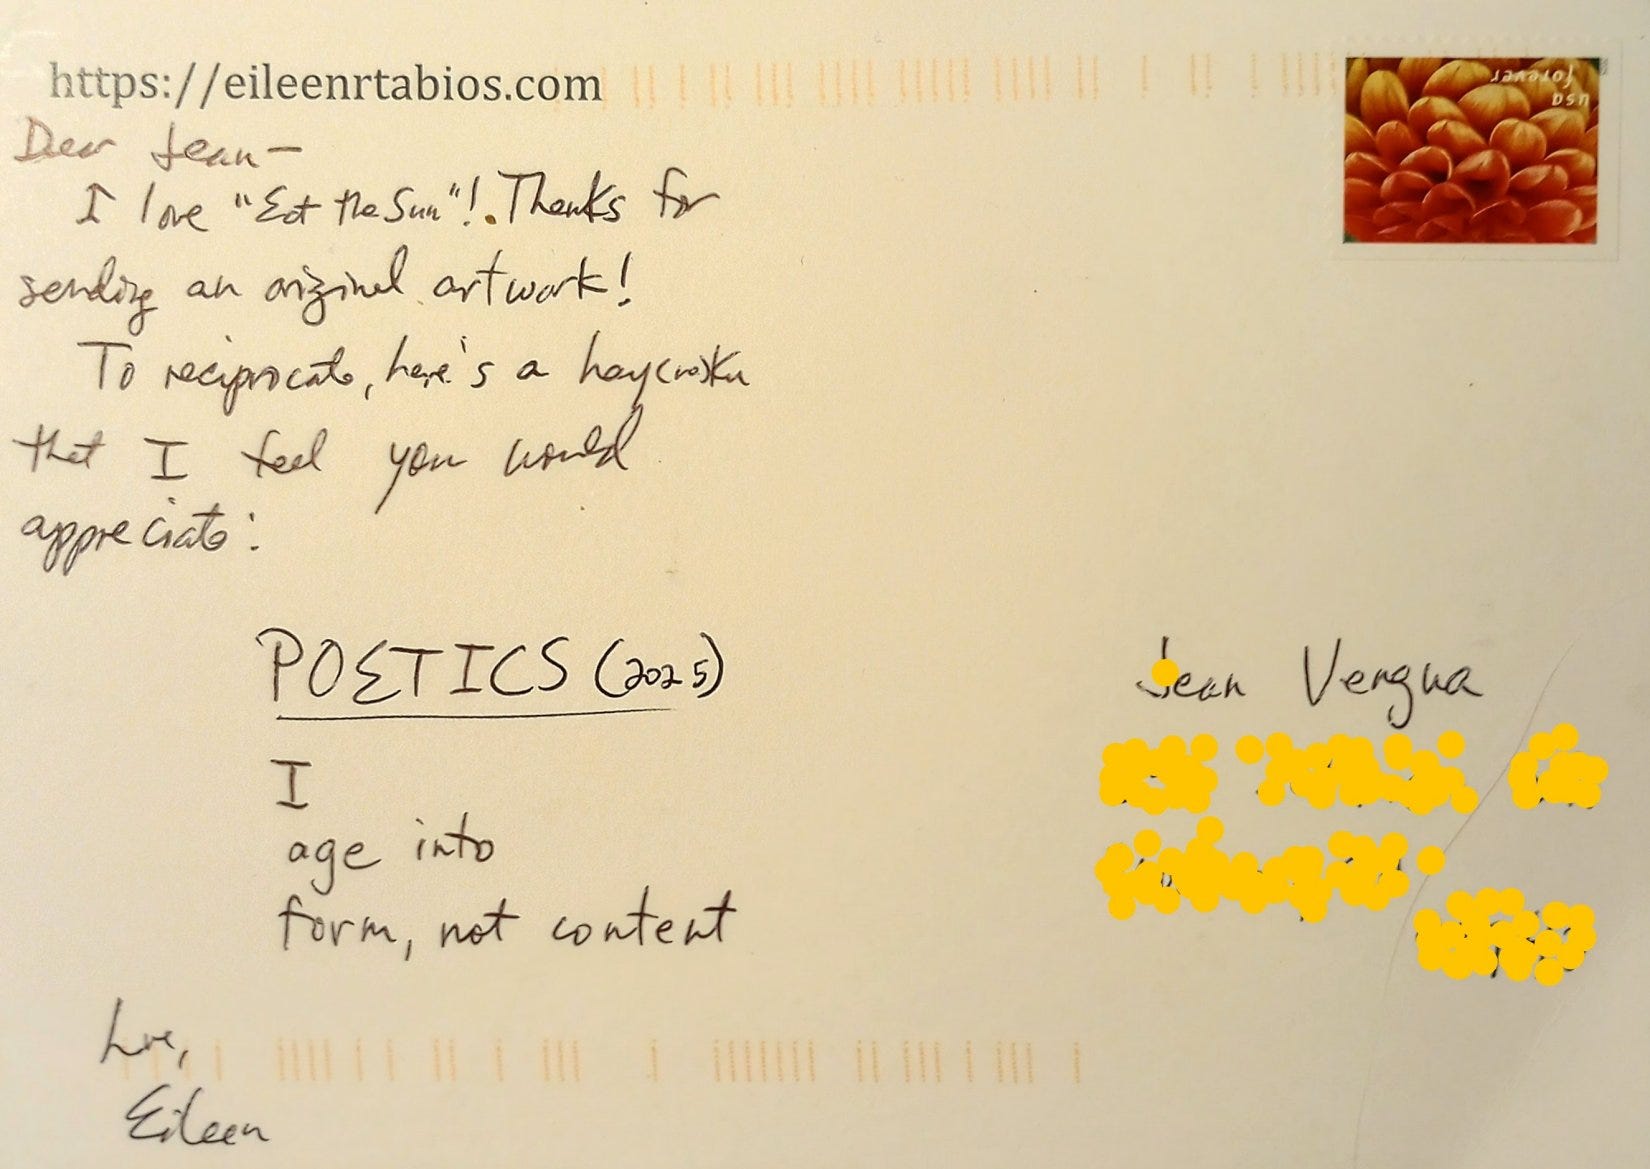 https://eileenrtabios.com
Dear Jean—
I love "Eat the Sun"! Thanks for
sending an original artwork!
To reciprocate, here's a hay(na)ku
that I feel you would
appreciate:
POETICS (2025)
I
age into
form, not content
Love,
Eileen
forever
USA
Jean Vengua